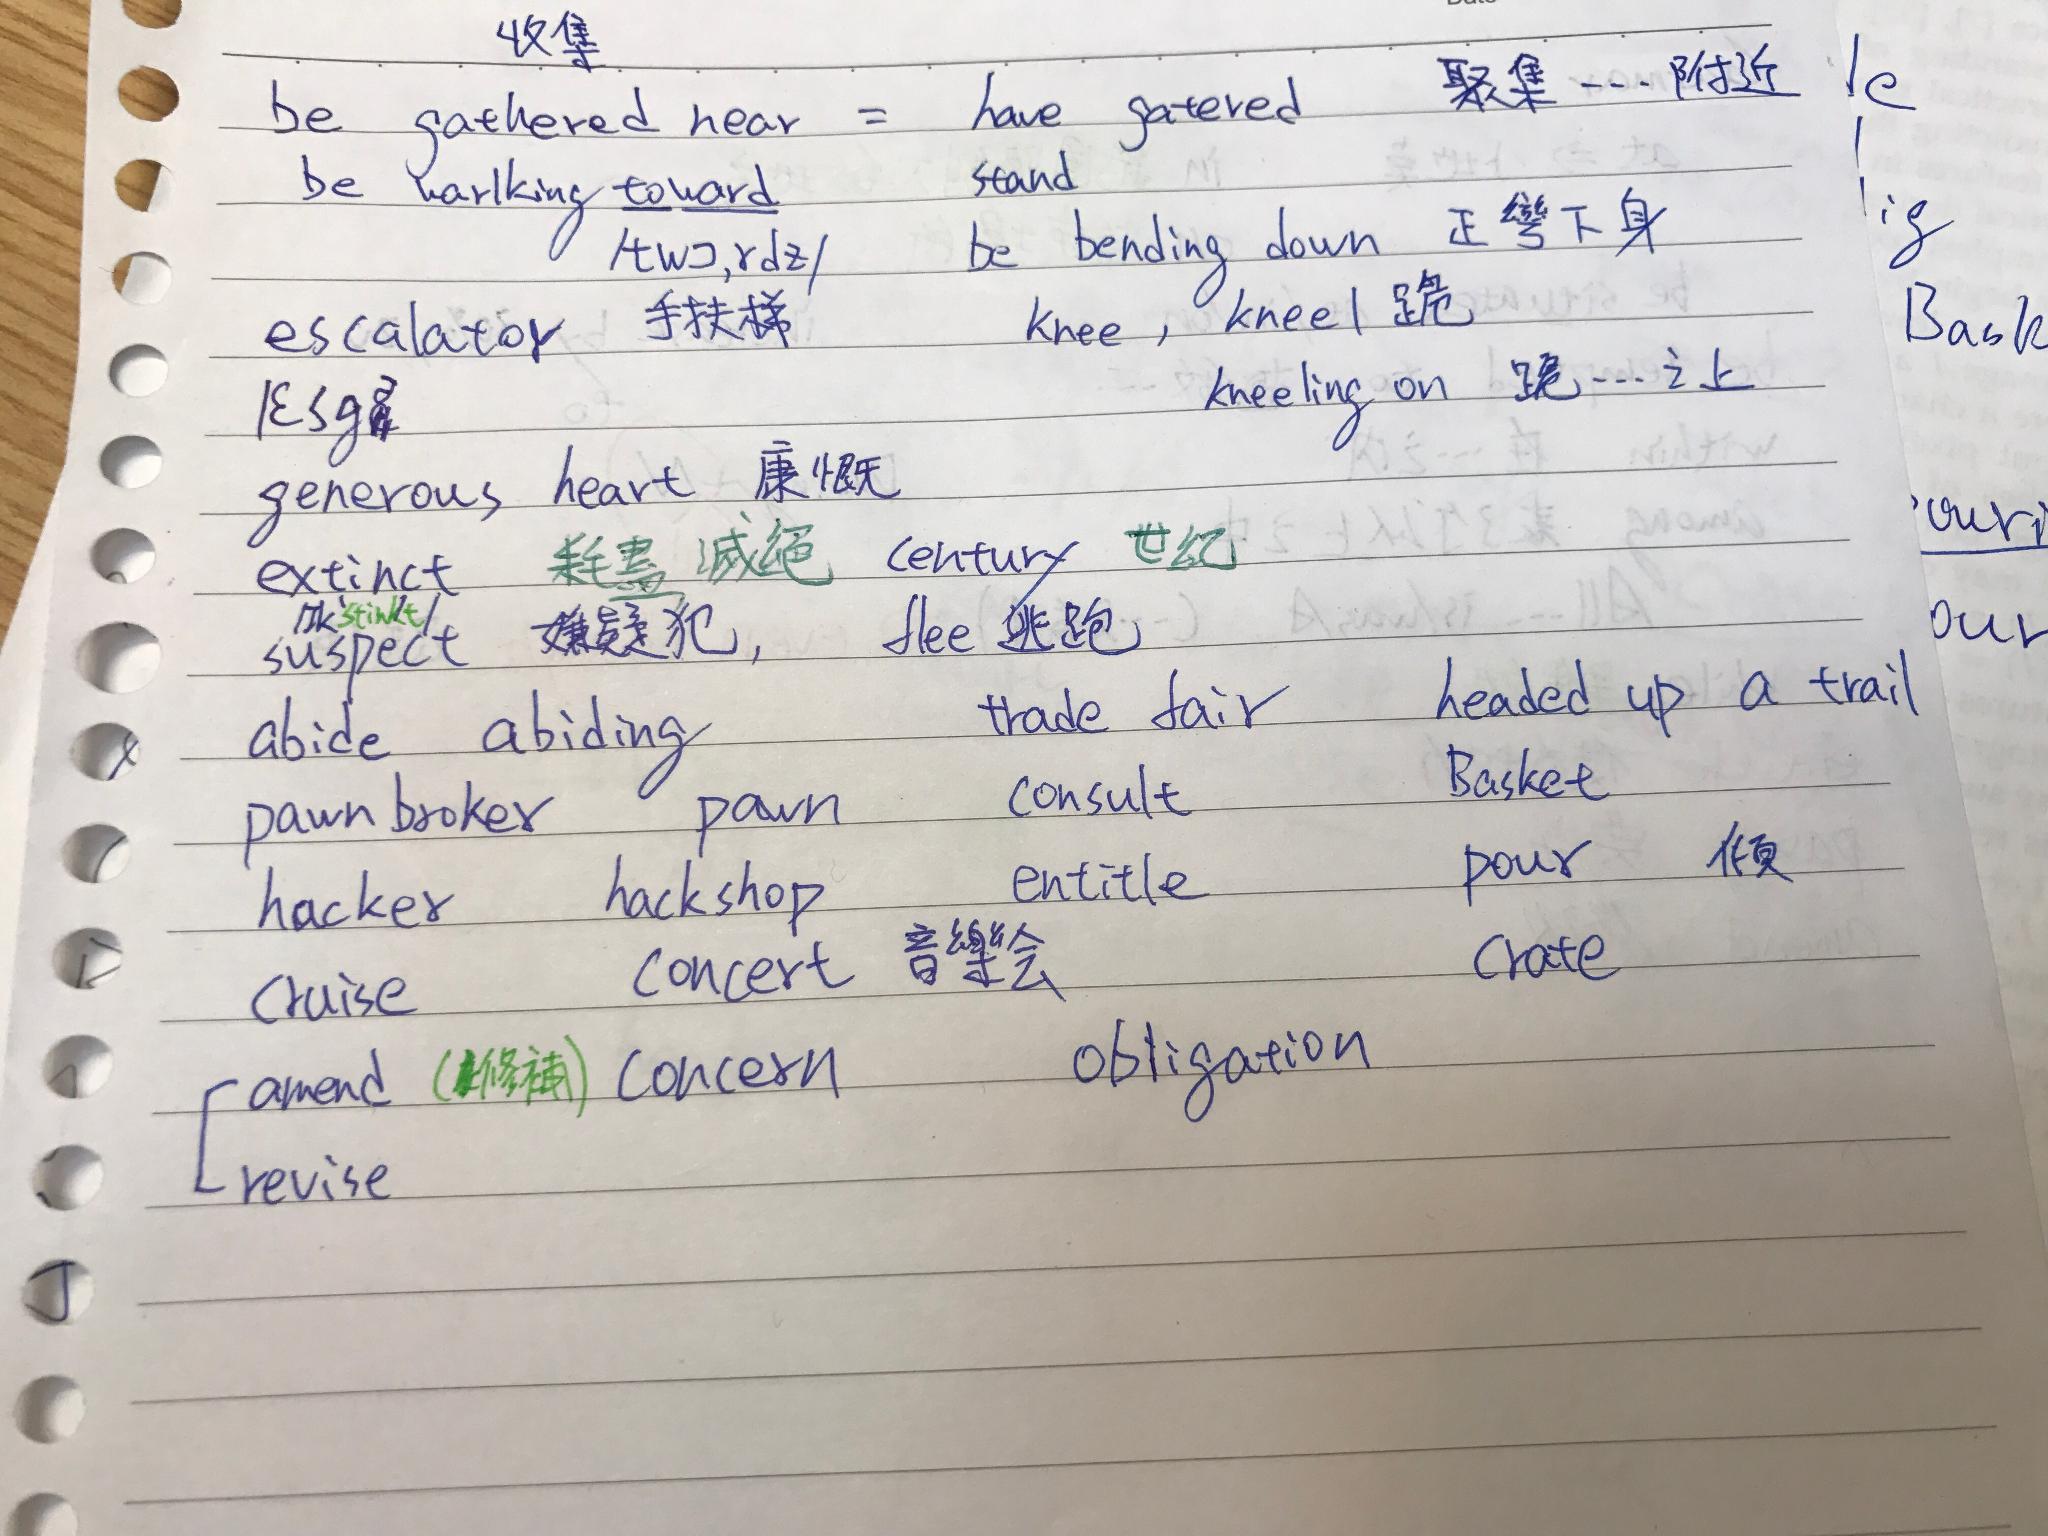 收集
be gathered near = have gatered 聚集……附近
be warlking toward stand
/twɔ,rdz/ be bending down 正彎下身
escalator 手扶梯 knee, kneel 跪
/ɛsg kneeling on 跪……之上
generous heart 康慨
extinct 耗盡 滅絕 century 世紀
/ɪk'stinkt/
suspect 嫌疑犯, flee 逃跑
abide abiding trade fair headed up a trail
pawnbroker pawn consult Basket
hacker hackshop entitle pour 傾
cruise concert 音樂会 crate
amend (修補) concern obligation
revise
le
ig
Bask
ouri
our